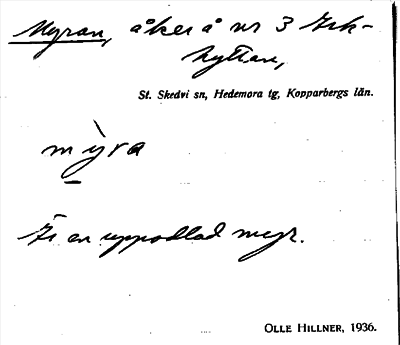 Myran, åker å nr 3 Irk-
hyttan,
St. Skedvi sn, Hedemora tg, Kopparbergs län.
mỳra
Är en uppodlad myr.
OLLE HILLNER, 1936.